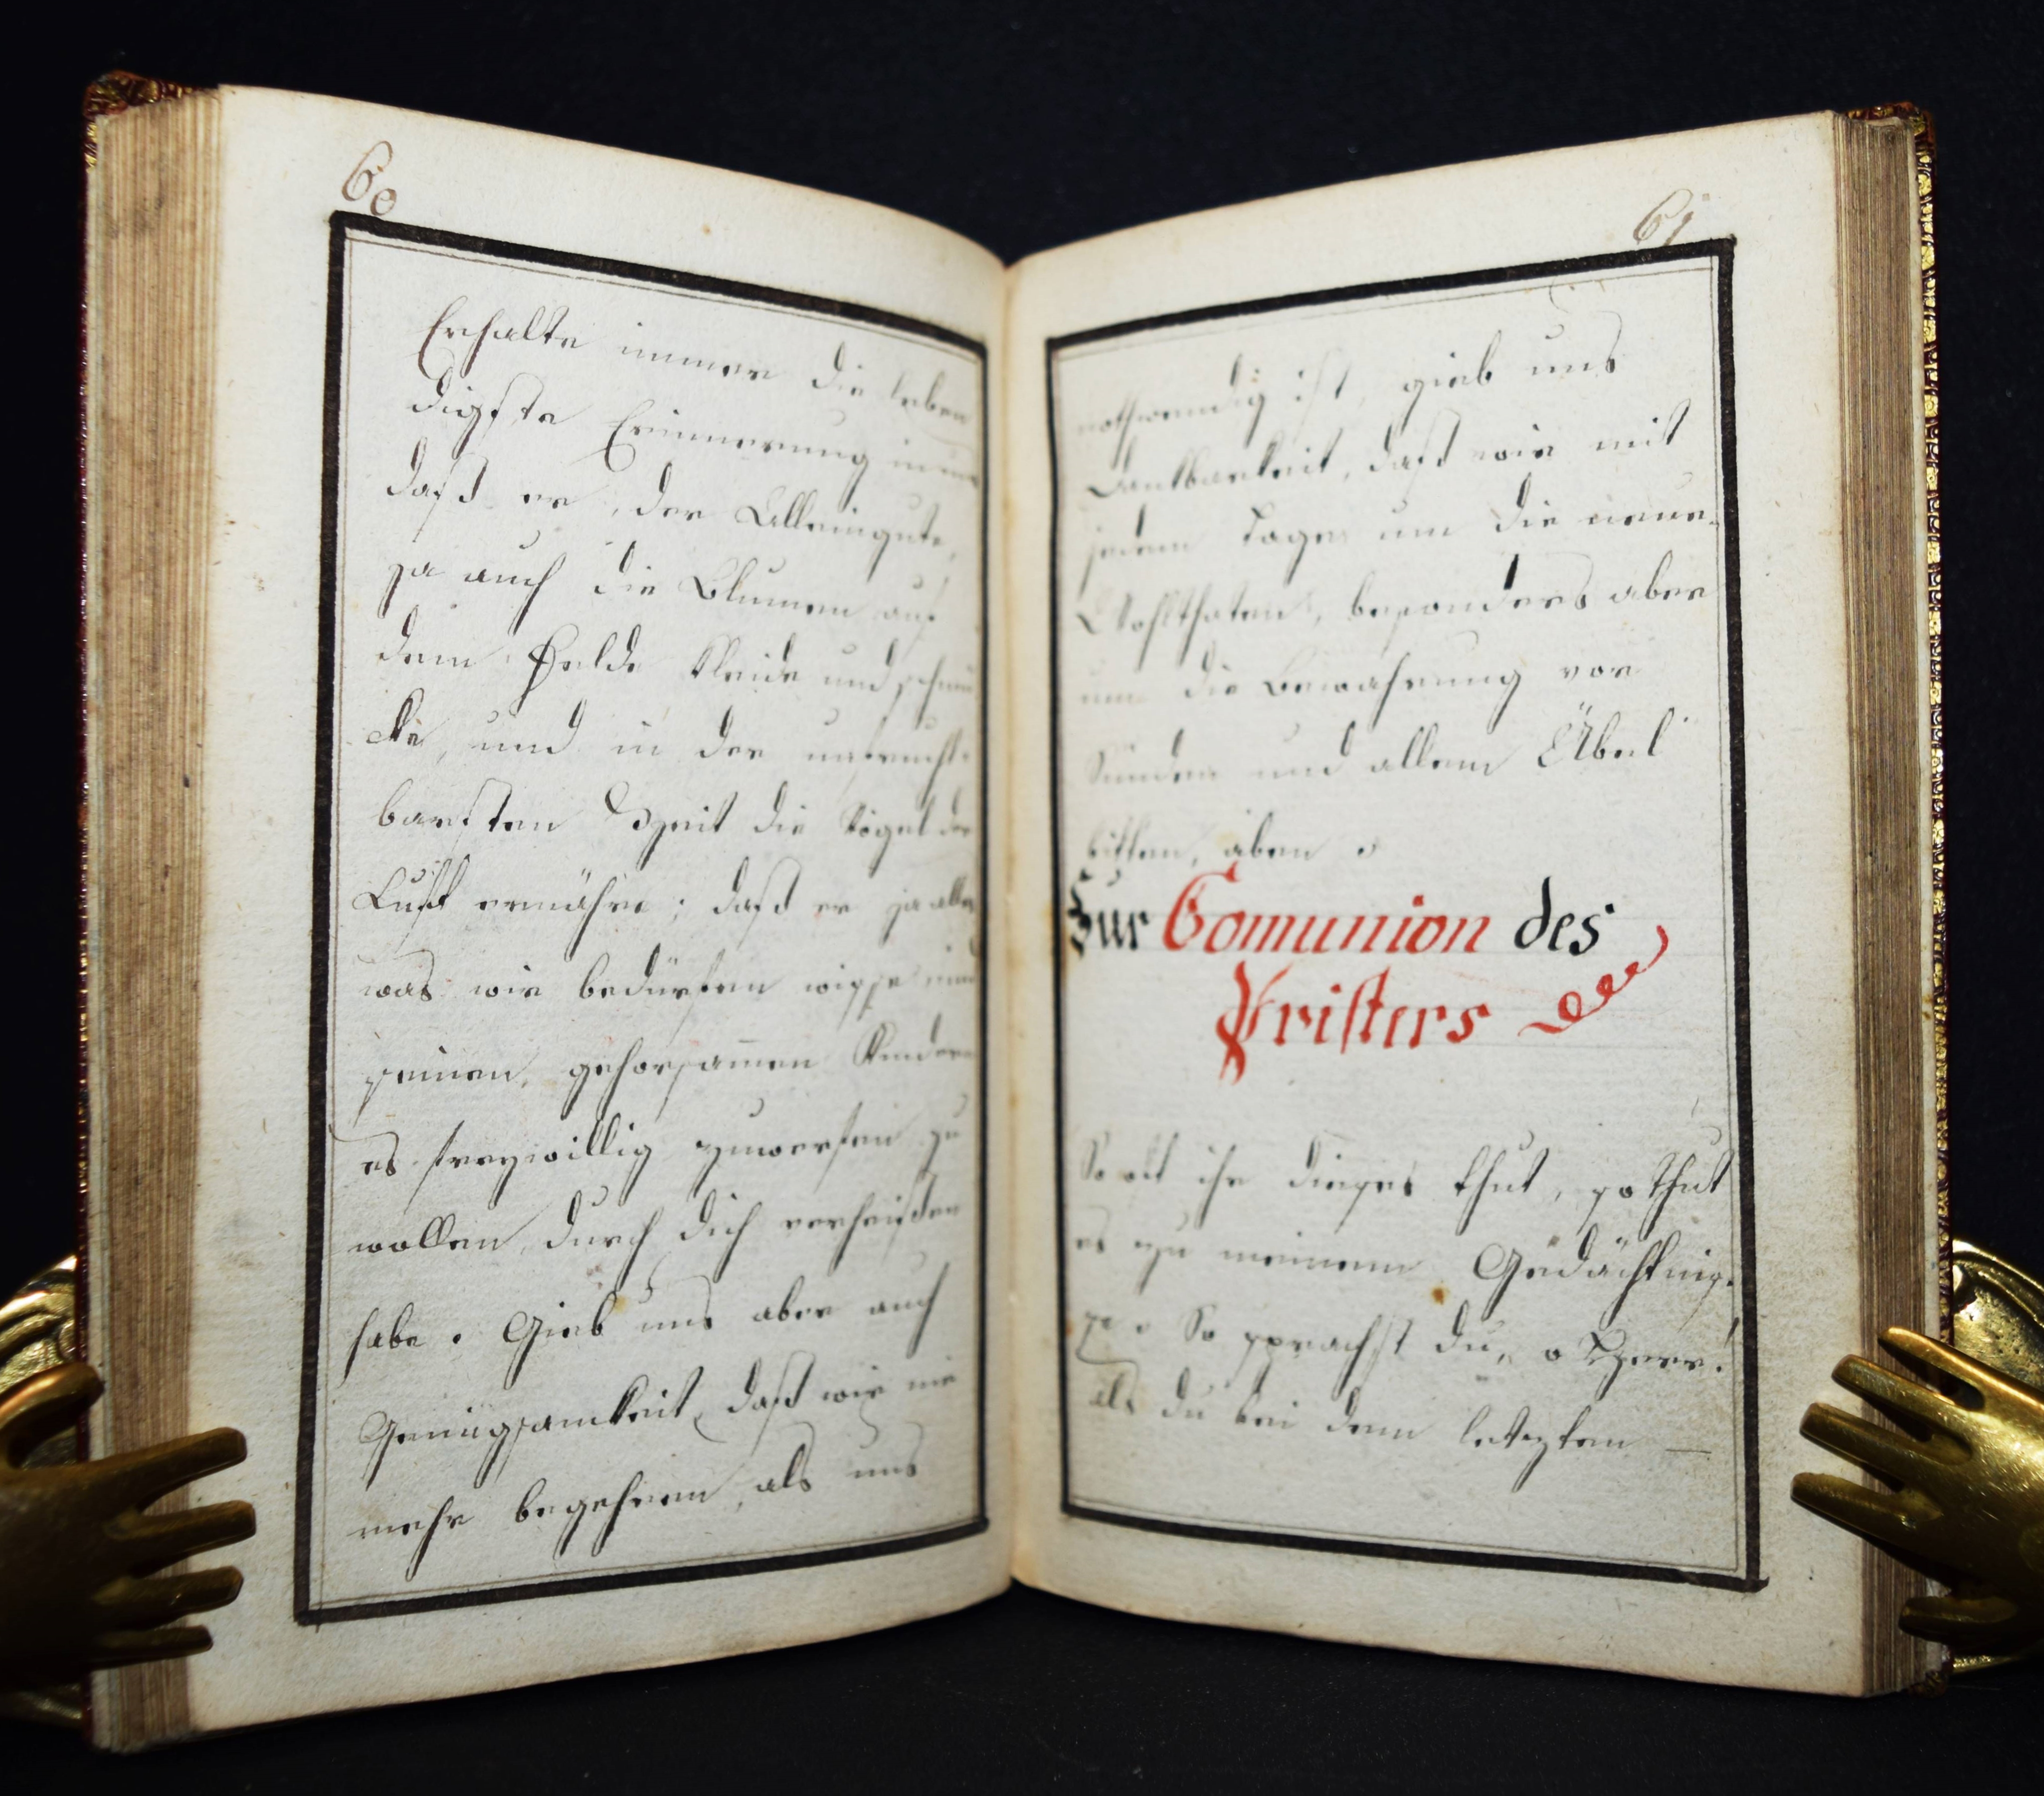 60
Erhalte immer die leben
digste Erinnerung in uns
daß er, der Alleingute,
ja auch die Blumen auf
dem Felde kleide und schmü
cke, und in der unfrucht-
barsten Zeit die Vögel der
Luft ernähre; daß er ja alles
was wir bedürfen wisse und
seinen, gehorsamen Kindern
es freywillig zuwerfen zu
wollen, durch dich verheißen
habe. Gieb uns aber auch
Genügsamkeit, daß wir nie
mehr begehren, als uns
61
nothwendig ist, gieb uns
Dankbarkeit, daß wir mit
jedem Tage um die neue
Wohlthaten, besonders aber
um die Bewahrung vor
Sünden und allem Übel
bitten, aben.
Zur Comunion des
Pristers
So oft ihr dieses thut, so thut
es zu meinem Gedächtnis-
se. So sprachst du, o Herr!
als du bei dem letzten —